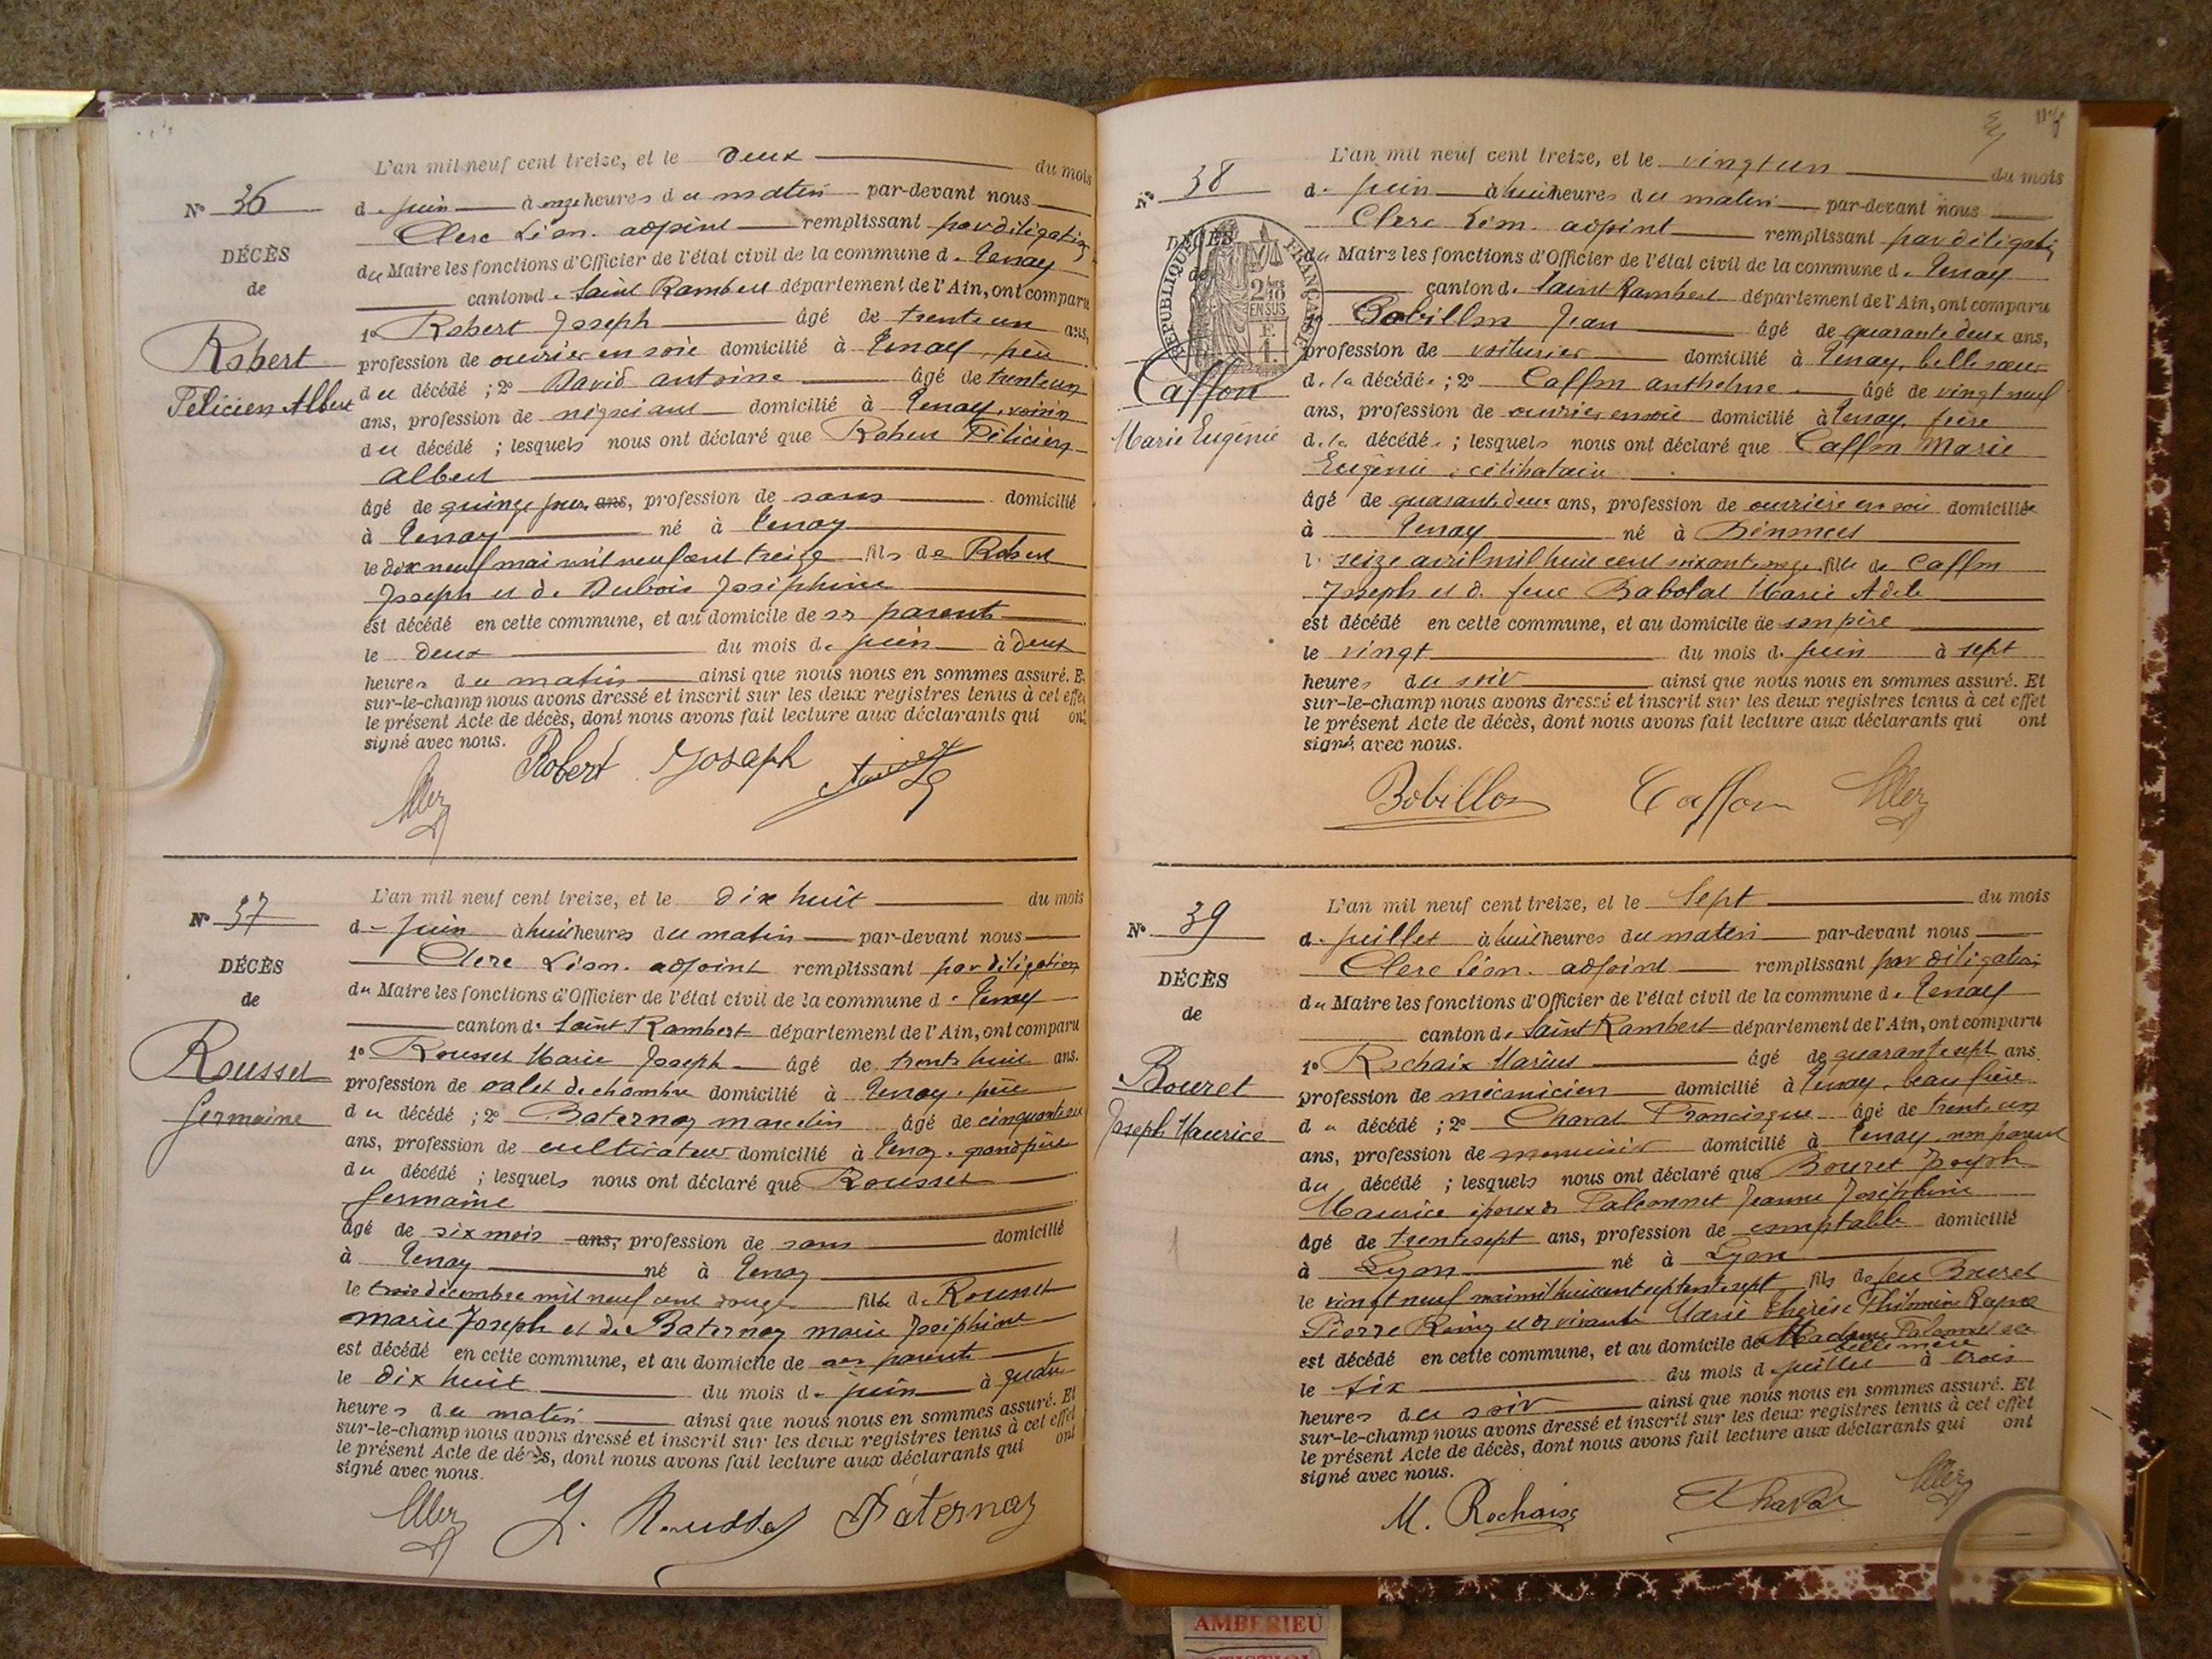 L'an mil neuf cent treize, et le deux du mois
N° 36
de juin à onze heures du matin par-devant nous
Clerc Léon. adjoint remplissant par délégation
DÉCÈS
du Maire les fonctions d'Officier de l'état civil de la commune de Tenay
de
canton de Saint Rambert département de l'Ain, ont comparu
1° Robert Joseph âgé de trente un ans,
Robert
profession de ouvrier en soie domicilié à Tenay, père
Félicien Albert
du décédé ; 2° David antoine âgé de trente un
ans, profession de négociant domicilié à Tenay, voisin
du décédé ; lesquels nous ont déclaré que Robert Félicien
Albert
âgé de quinze jours ans, profession de sans domicilié
à Tenay né à Tenay
le dix neuf mai mil neuf cent treize fils de Robert
Joseph et de Dubois Joséphine
est décédé en cette commune, et au domicile de ses parents
le deux du mois de juin à deux
heures du matin ainsi que nous nous en sommes assuré. Et
sur-le-champ nous avons dressé et inscrit sur les deux registres tenus à cet effet
le présent Acte de décès, dont nous avons fait lecture aux déclarants qui ont
signé avec nous.
Robert Joseph
L'an mil neuf cent treize, et le dix huit du mois
N° 37
de juin à huit heures du matin par-devant nous
Clerc Léon. adjoint remplissant par délégation
DÉCÈS
du Maire les fonctions d'Officier de l'état civil de la commune de Tenay
de
canton de Saint Rambert département de l'Ain, ont comparu
1° Rousset Marie Joseph âgé de trente huit ans.
Rousset
profession de valet de chambre domicilié à Tenay, père
Germaine
du décédé ; 2° Baternay marcelin âgé de cinquante
ans, profession de cultivateur domicilié à Tenay, grand père
du décédé ; lesquels nous ont déclaré que Rousset
Germaine
âgé de six mois ans, profession de sans domicilié
à Tenay né à Tenay
le trois décembre mil neuf cent douze fille de Rousset
marie Joseph et de Baternay marie Joséphine
est décédé en cette commune, et au domicile de ses parents
le dix huit du mois de juin à quatre
heures du matin ainsi que nous nous en sommes assuré. Et
sur-le-champ nous avons dressé et inscrit sur les deux registres tenus à cet effet
le présent Acte de décès, dont nous avons fait lecture aux déclarants qui ont
signé avec nous.
J. Rousset Baternay
L'an mil neuf cent treize, et le vingt un du mois
N° 38
de juin à huit heures du matin par-devant nous
Clerc Léon. adjoint remplissant par délégation
DÉCÈS
du Maire les fonctions d'Officier de l'état civil de la commune de Tenay
de
RÉPUBLIQUE FRANÇAISE
2/10 EN SUS
canton de Saint Rambert département de l'Ain, ont comparu
1° Bobillon Jean âgé de quarante deux ans,
profession de voiturier domicilié à Tenay, belle sœur
Caffon
de la décédée ; 2° Caffon anthelme âgé de vingt neuf
Marie Eugénie
ans, profession de ouvrier en soie domicilié à Tenay, frère
de la décédée ; lesquels nous ont déclaré que Caffon Marie
Eugénie, célibataire
âgé de quarante deux ans, profession de ouvrière en soie domiciliée
à Tenay né à Bénonces
le seize avril mil huit cent soixante onze fille de Caffon
Joseph et de feue Babolat Marie Adèle
est décédé en cette commune, et au domicile de son père
le vingt du mois de juin à sept
heures du soir ainsi que nous nous en sommes assuré. Et
sur-le-champ nous avons dressé et inscrit sur les deux registres tenus à cet effet
le présent Acte de décès, dont nous avons fait lecture aux déclarants qui ont
signé avec nous.
Bobillon Caffon
L'an mil neuf cent treize, et le Sept du mois
N° 39
de juillet à huit heures du matin par-devant nous
Clerc Léon. adjoint remplissant par délégation
DÉCÈS
du Maire les fonctions d'Officier de l'état civil de la commune de Tenay
de
canton de Saint Rambert département de l'Ain, ont comparu
1° Rochaix Marius âgé de quarante sept ans.
Bouret
profession de mécanicien domicilié à Tenay, beau frère
Joseph Maurice
du décédé ; 2° Charvat Francisque âgé de trente un
ans, profession de menuisier domicilié à Tenay, non parent
du décédé ; lesquels nous ont déclaré que Bouret Joseph
Maurice époux de Falconnet Jeanne Joséphine
âgé de trente sept ans, profession de comptable domicilié
à Lyon né à Lyon
le vingt neuf mai mil huit cent septante sept fils de feu Bouret
Pierre Rémy et de vivante Marie Thérèse Philomène
est décédé en cette commune, et au domicile de Madame Falconnet sa
belle mère
le six du mois de juillet à trois
heures du soir ainsi que nous nous en sommes assuré. Et
sur-le-champ nous avons dressé et inscrit sur les deux registres tenus à cet effet
le présent Acte de décès, dont nous avons fait lecture aux déclarants qui ont
signé avec nous.
M. Rochaix
AMBERIEU